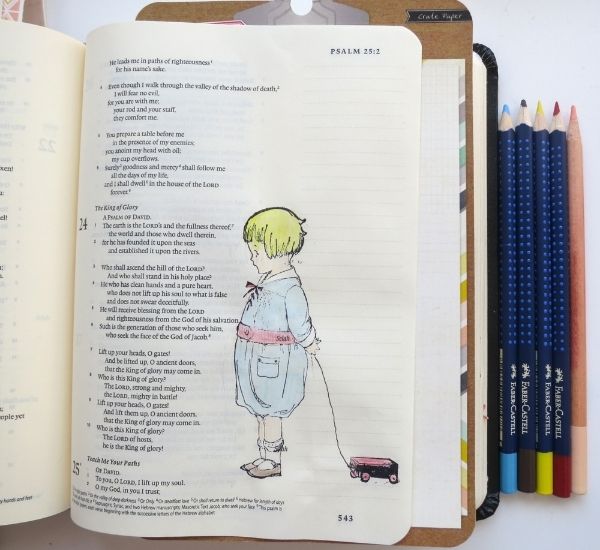 Crate Paper
PSALM 25:2
He leads me in paths of righteousness
for his name's sake.
4 Even though I walk through the valley of the shadow of death,2
I will fear no evil,
for you are with me;
your rod and your staff,
they comfort me.
5 You prepare a table before me
in the presence of my enemies;
you anoint my head with oil;
my cup overflows.
6 Surely goodness and mercy shall follow me
all the days of my life,
and I shall dwell in the house of the LORD
forever.
The King of Glory
24 A PSALM OF DAVID.
1 The earth is the LORD's and the fullness thereof,
the world and those who dwell therein,
2 for he has founded it upon the seas
and established it upon the rivers.
3 Who shall ascend the hill of the LORD?
And who shall stand in his holy place?
4 He who has clean hands and a pure heart,
who does not lift up his soul to what is false
and does not swear deceitfully.
5 He will receive blessing from the LORD
and righteousness from the God of his salvation.
6 Such is the generation of those who seek him,
who seek the face of the God of Jacob.
Selah
7 Lift up your heads, O gates!
And be lifted up, O ancient doors,
that the King of glory may come in.
8 Who is this King of glory?
The LORD, strong and mighty,
the LORD, mighty in battle!
9 Lift up your heads, O gates!
And lift them up, O ancient doors,
that the King of glory may come in.
10 Who is this King of glory?
The LORD of hosts,
he is the King of glory!
Selah
Teach Me Your Paths
25 OF DAVID.
1 To you, O LORD, I lift up my soul.
2 O my God, in you I trust,
543
FABER-CASTELL
FABER-CASTELL
FABER-CASTELL
FABER-CASTELL